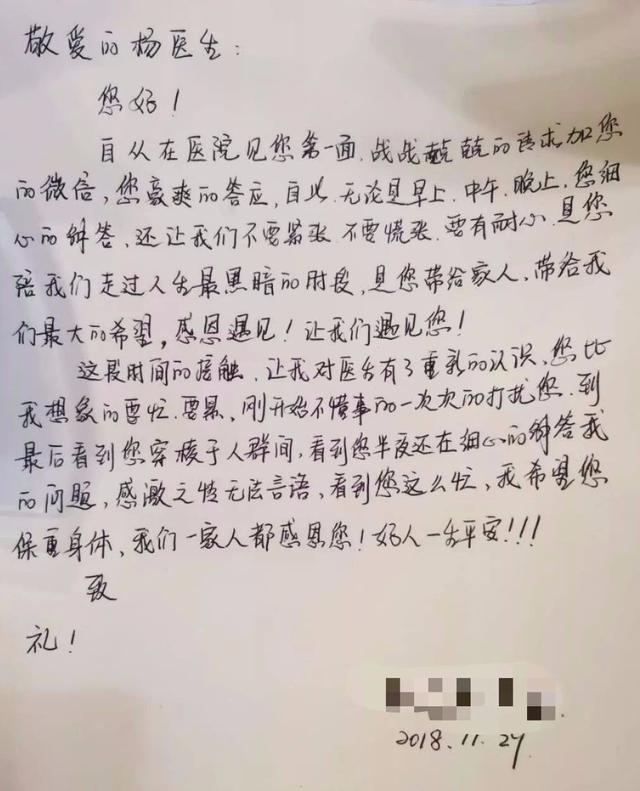 敬爱的杨医生：
您好！
自从在医院见您第一面，战战兢兢的请求加您
的微信，您豪爽的答应，自此，无论是早上、中午、晚上，您细
心的解答，还让我们不要紧张，不要慌张，要有耐心，是您
陪我们走过人生最黑暗的时段，是您带给家人，带给我
们最大的希望，感恩遇见！让我们遇见您！
这段时间的接触，让我对医生有了重新的认识，您比
我想象的要忙、要累，刚开始不懂事的一次次的打扰您，到
最后看到您穿梭于人群间，看到您半夜还在细心的解答我
的问题，感激之情无法言语，看到您这么忙，我希望您
保重身体，我们一家人都感恩您！好人一生平安!!!
致
礼！
2018.11.27